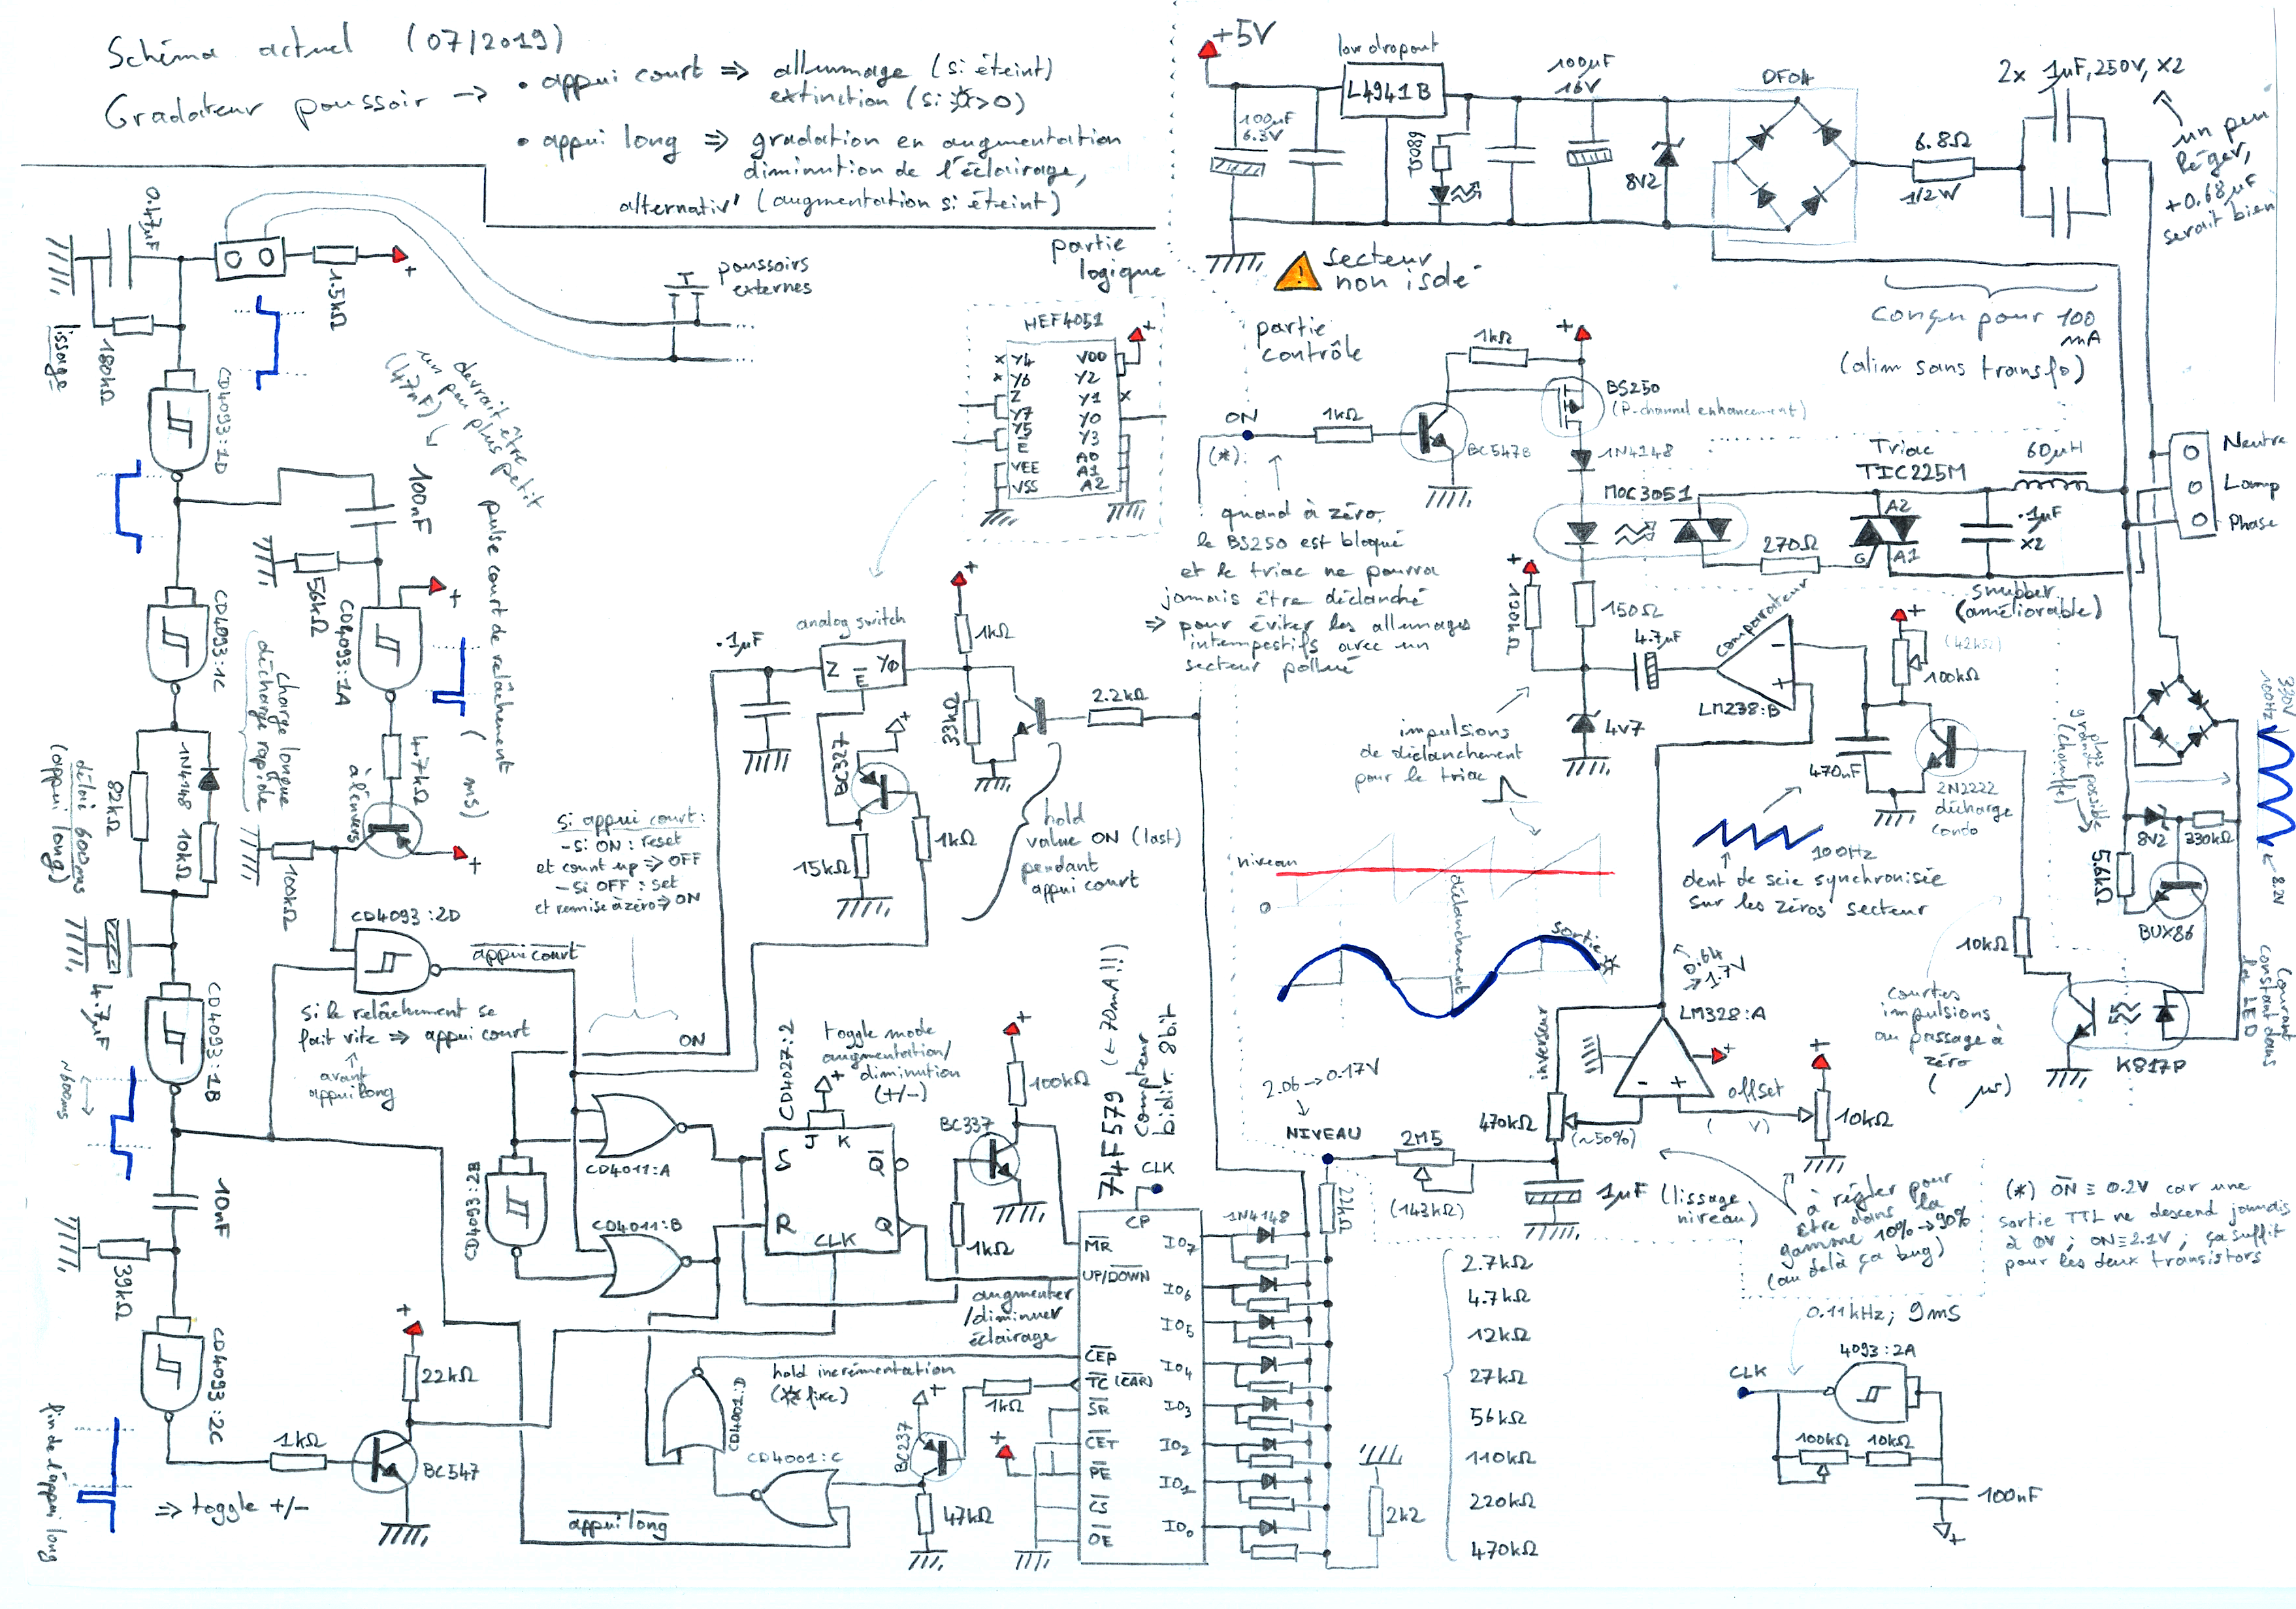 Schéma actuel (07/2019)
Gradateur poussoir → • appui court ⇒ allumage (si éteint)
extinction (si ☼>0)
• appui long ⇒ gradation en augmentation
diminution de l'éclairage,
alternativ' (augmentation si éteint)
+5V
low dropout
L4941B
100µF
6.3V
680Ω
100µF
16V
8V2
DF04
6.8Ω
1/2W
2x 1µF, 250V, X2
un peu
léger,
+0.68µF
serait bien
secteur
non isolé
conçu pour 100
mA
(alim sans transfo)
partie
logique
partie
contrôle
0.47µF
180kΩ
lissage
1.5kΩ
+
poussoirs
externes
CD4093:1D
devrait être
un peu plus petit
(47nF)
100nF
56kΩ
CD4093:1A
+
pulse court de relâchement
( ms)
CD4093:1C
charge longue
décharge rapide
1N4148
10kΩ
82kΩ
délai 600ms
(appui long)
4.7kΩ
à l'envers
+
100kΩ
4.7µF
CD4093:1B
~600ms
CD4093:2D
appui court
si le relâchement se
fait vite ⇒ appui court
avant
appui long
10nF
39kΩ
CD4093:2C
fin de l'appui long
1kΩ
22kΩ
+
BC547
⇒ toggle +/-
HEF4051
Y4
Y6
Z
Y7
Y5
E
VEE
VSS
VDD
Y2
Y1
Y0
Y3
A0
A1
A2
+
analog switch
.1µF
Z
E
YØ
+
1kΩ
33kΩ
2.2kΩ
BC327
+
15kΩ
1kΩ
hold
value ON (last)
pendant
appui court
si appui court:
- si ON : reset
et count up ⇒ OFF
- si OFF : set
et remise à zéro ⇒ ON
ON
CD4093:2B
CD4011:A
CD4011:B
CD4027:2
toggle mode
augmentation/
diminution
(+/-)
+
J K
S
R
Q
Q
CLK
BC337
100kΩ
+
1kΩ
augmenter
/diminuer
éclairage
hold incrémentation
(☼ fixe)
CD4001:D
CD4001:C
appui long
BC237
+
1kΩ
47kΩ
74F579 (~70mA!!!)
Compteur
bidir. 8bit
CLK
CP
MR
UP/DOWN
CEP
TC (CAR)
SR
CET
PE
CS
OE
+
IO7
IO6
IO5
IO4
IO3
IO2
IO1
IO0
1N4148
22kΩ
2k2
2.7kΩ
4.7kΩ
12kΩ
27kΩ
56kΩ
110kΩ
220kΩ
470kΩ
ON
(*)
1kΩ
1kΩ
BC547B
+
BS250
(P-channel enhancement)
1N4148
MOC3051
150Ω
quand à zéro,
le BS250 est bloqué
et le triac ne pourra
jamais être déclanché
⇒ pour éviter les allumages
intempestifs avec un
secteur pollué
Triac
TIC225M
A2
G
A1
270Ω
60µH
.1µF
X2
snubber
(améliorable)
Neutre
Lamp
Phase
4.7µF
4V7
comparateur
LM238:B
impulsions
de déclanchement
pour le triac
+
(42kΩ)
100kΩ
470nF
2N2222
décharge
condo
100Hz
dent de scie synchronisée
sur les zéros secteur
10kΩ
courtes
impulsions
au passage à
zéro
( µs)
K817P
courant
constant dans
la LED
plus
grande possible
(chauffe)
8V2
330kΩ
5.6kΩ
BUX86
330V
100Hz
8.2V
niveau
0
déclanchement
sortie ☼
0.64
→ 1.7V
LM328:A
+
inverseur
offset
( V)
+
10kΩ
470kΩ
(~50%)
2.06→0.17V
NIVEAU
2M5
(143kΩ)
1µF (lissage
niveau)
à régler pour
être dans la
gamme 10%→90%
(au delà ça bug)
(*) ON ≡ 0.2V car une
sortie TTL ne descend jamais
à 0V ; ON≡2.1V ; ça suffit
pour les deux transistors
0.11kHz; 9ms
4093:2A
CLK
100kΩ
10kΩ
100nF
+